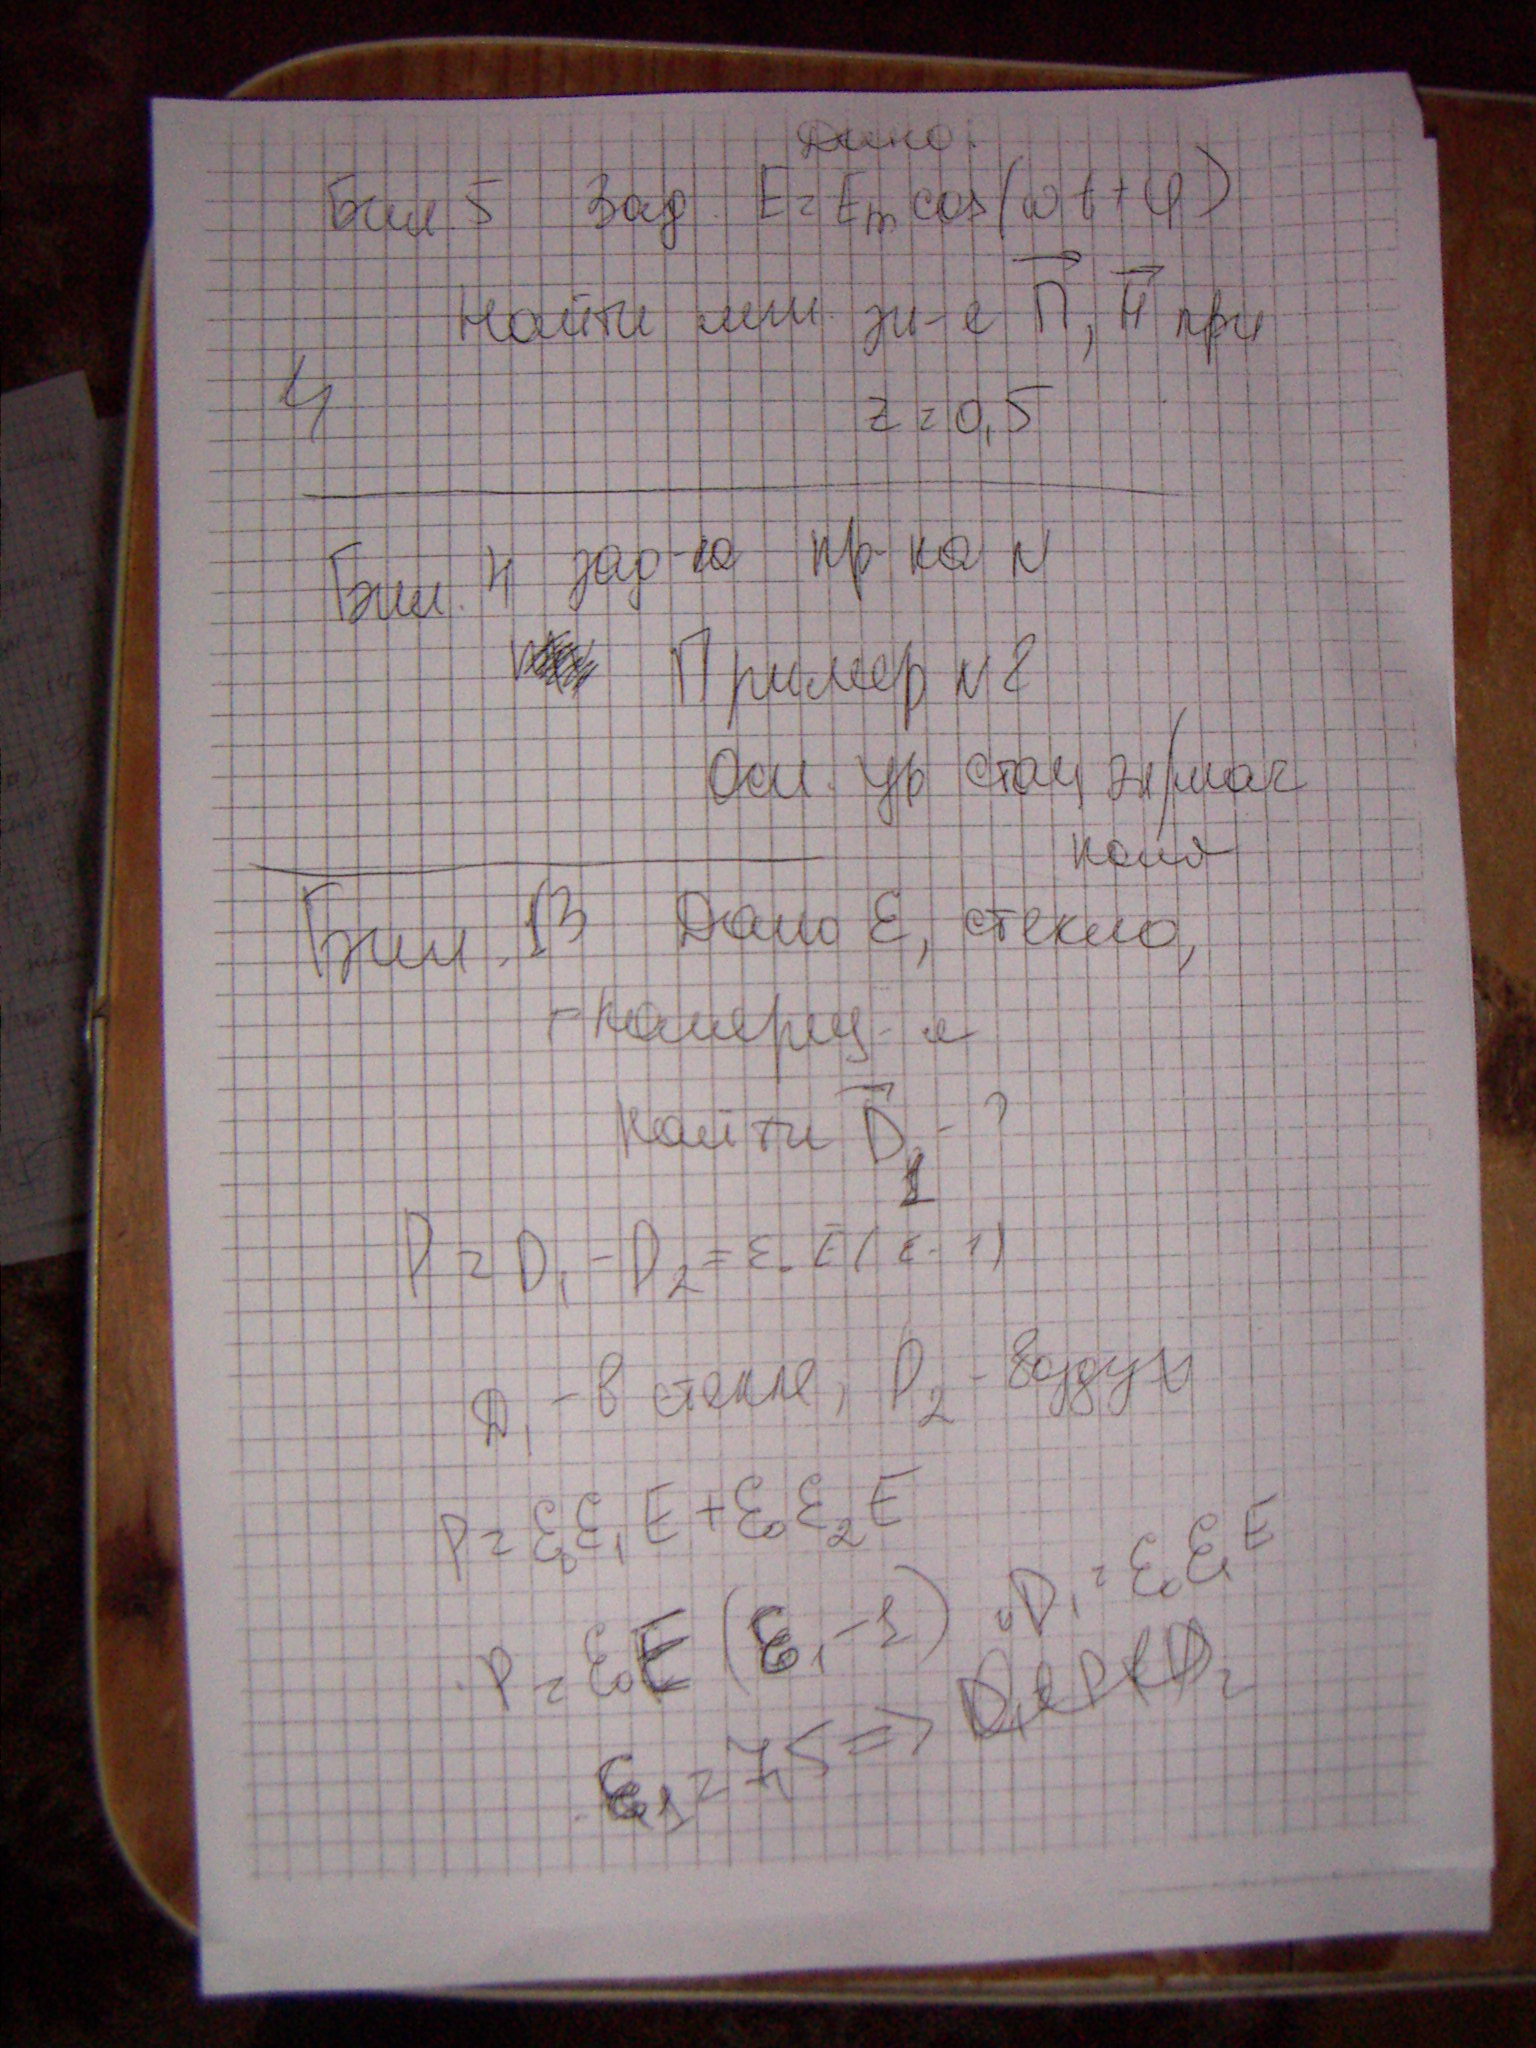 Дано:
Бил. 5 Зад. E = Em cos(ωt+φ)
Найти мгн. зн-е П, H при
4
z = 0,5
Бил. 4 зад-ка пр-ка N
Пример N2
Осн. ур стац эл/маг
поля
Бил. 13 Дано ε, стекло,
Найти D1 - ?
P = D1 - D2 = ε0 E(ε-1)
D1 - в стекле, D2 - воздух
P = ε0ε1E + ε0ε2E
P = ε0E (ε1-1) D1 = ε0ε1E
ε1 = 7,5 =>